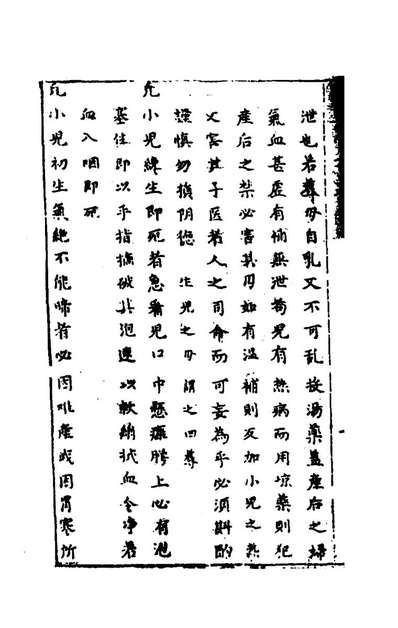 泄也若蓐母自乳又不可乱投湯藥盖産后之婦
氣血甚虚有補無泄苟児有热病而用凉藥則犯
産后之禁必害其母如有温補則反加小児之热
又害其子医若人之司命而可妄為乎必须斟酌
謹慎勿損阴德 生児之母謂之曰蓐
凡小児纔生即死者急看児口中懸癰腭上必有泡
塞住即以手指摘破其泡連以軟綿拭血令净若
血入咽即死
凡小児初生氣絶不能啼者必因难産或因冒寒所